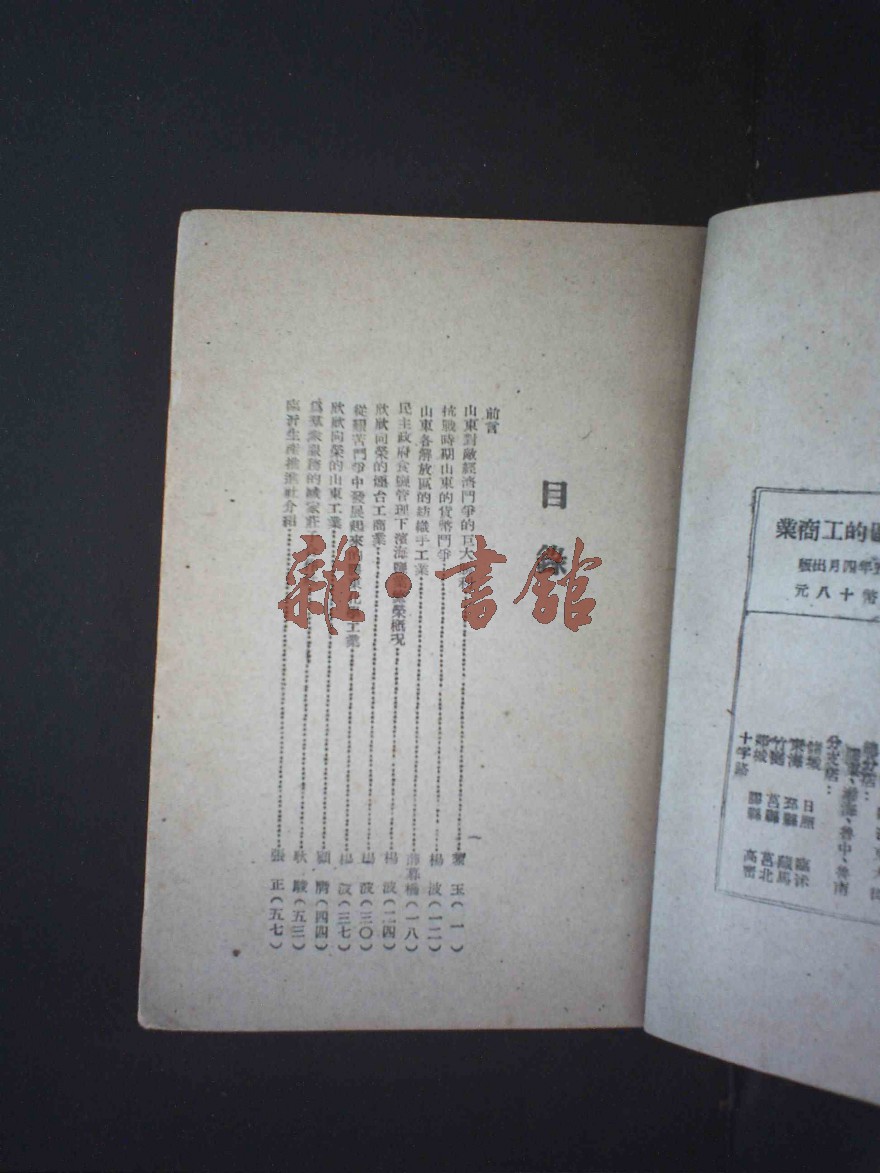 目錄
前言
山東對敵經濟鬥爭的巨大 玉(一)
抗戰時期山東的貨幣鬥爭 楊波(一二)
山東各解放區的紡織手工業 薛暮橋(一八)
民主政府食鹽管理下濱海鹽 榮概況 楊波(二四)
欣欣向榮的煙台工商業 楊波(三〇)
從艱苦鬥爭中發展起來的 工業 楊波(三七)
欣欣向榮的山東工業 (四四)
為羣衆服務的臧家莊 耿駿(五三)
臨沂生產推進社介紹 張正(五七)
雜·書館
的工商業
年四月出版
幣十八元
分支店：
膠東、渤海、魯中、魯南
諸城 日照 臨沭
東海 邳縣 藏馬
竹庭 莒縣
郯城 莒北
十字路 膠縣 高密